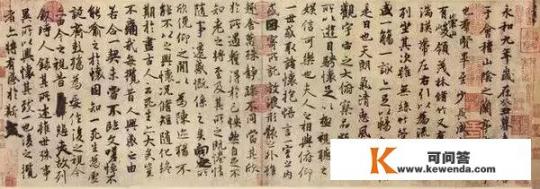 永和九年歲在癸丑暮春
于會稽山陰之蘭亭
也群賢畢至少長咸
有崇山峻領茂林脩竹
湍暎帶左右引以為流
列坐其次雖無絲竹
盛一觴一詠亦足以暢
是日也天朗氣清惠風
觀宇宙之大俯察
所以遊目騁懷足以極視聽之
娛信可樂也夫人之相與俯仰
一世或取諸懷抱悟言一室之內
或因寄所託放浪形骸之外雖
趣舍萬殊靜躁不同當其欣
於所遇蹔得於己怏然自足不
知老之將至及其所之既惓情
隨事遷感慨係之矣向之所
欣俛仰之閒以為陳跡猶不
能不以之興懷況脩短隨化終
期於盡古人云死生亦大矣豈
不痛哉每攬昔人興感之由
若合一契未嘗不臨文嗟悼不
能喻之於懷固知一死生為虛
誕齊彭殤為妄作後之視今
亦由今之視昔悲夫故列
敘時人錄其所述雖世殊事
異所以興懷其致一也後之攬
者亦將有感於斯
K 可问答
www.kewenda.com